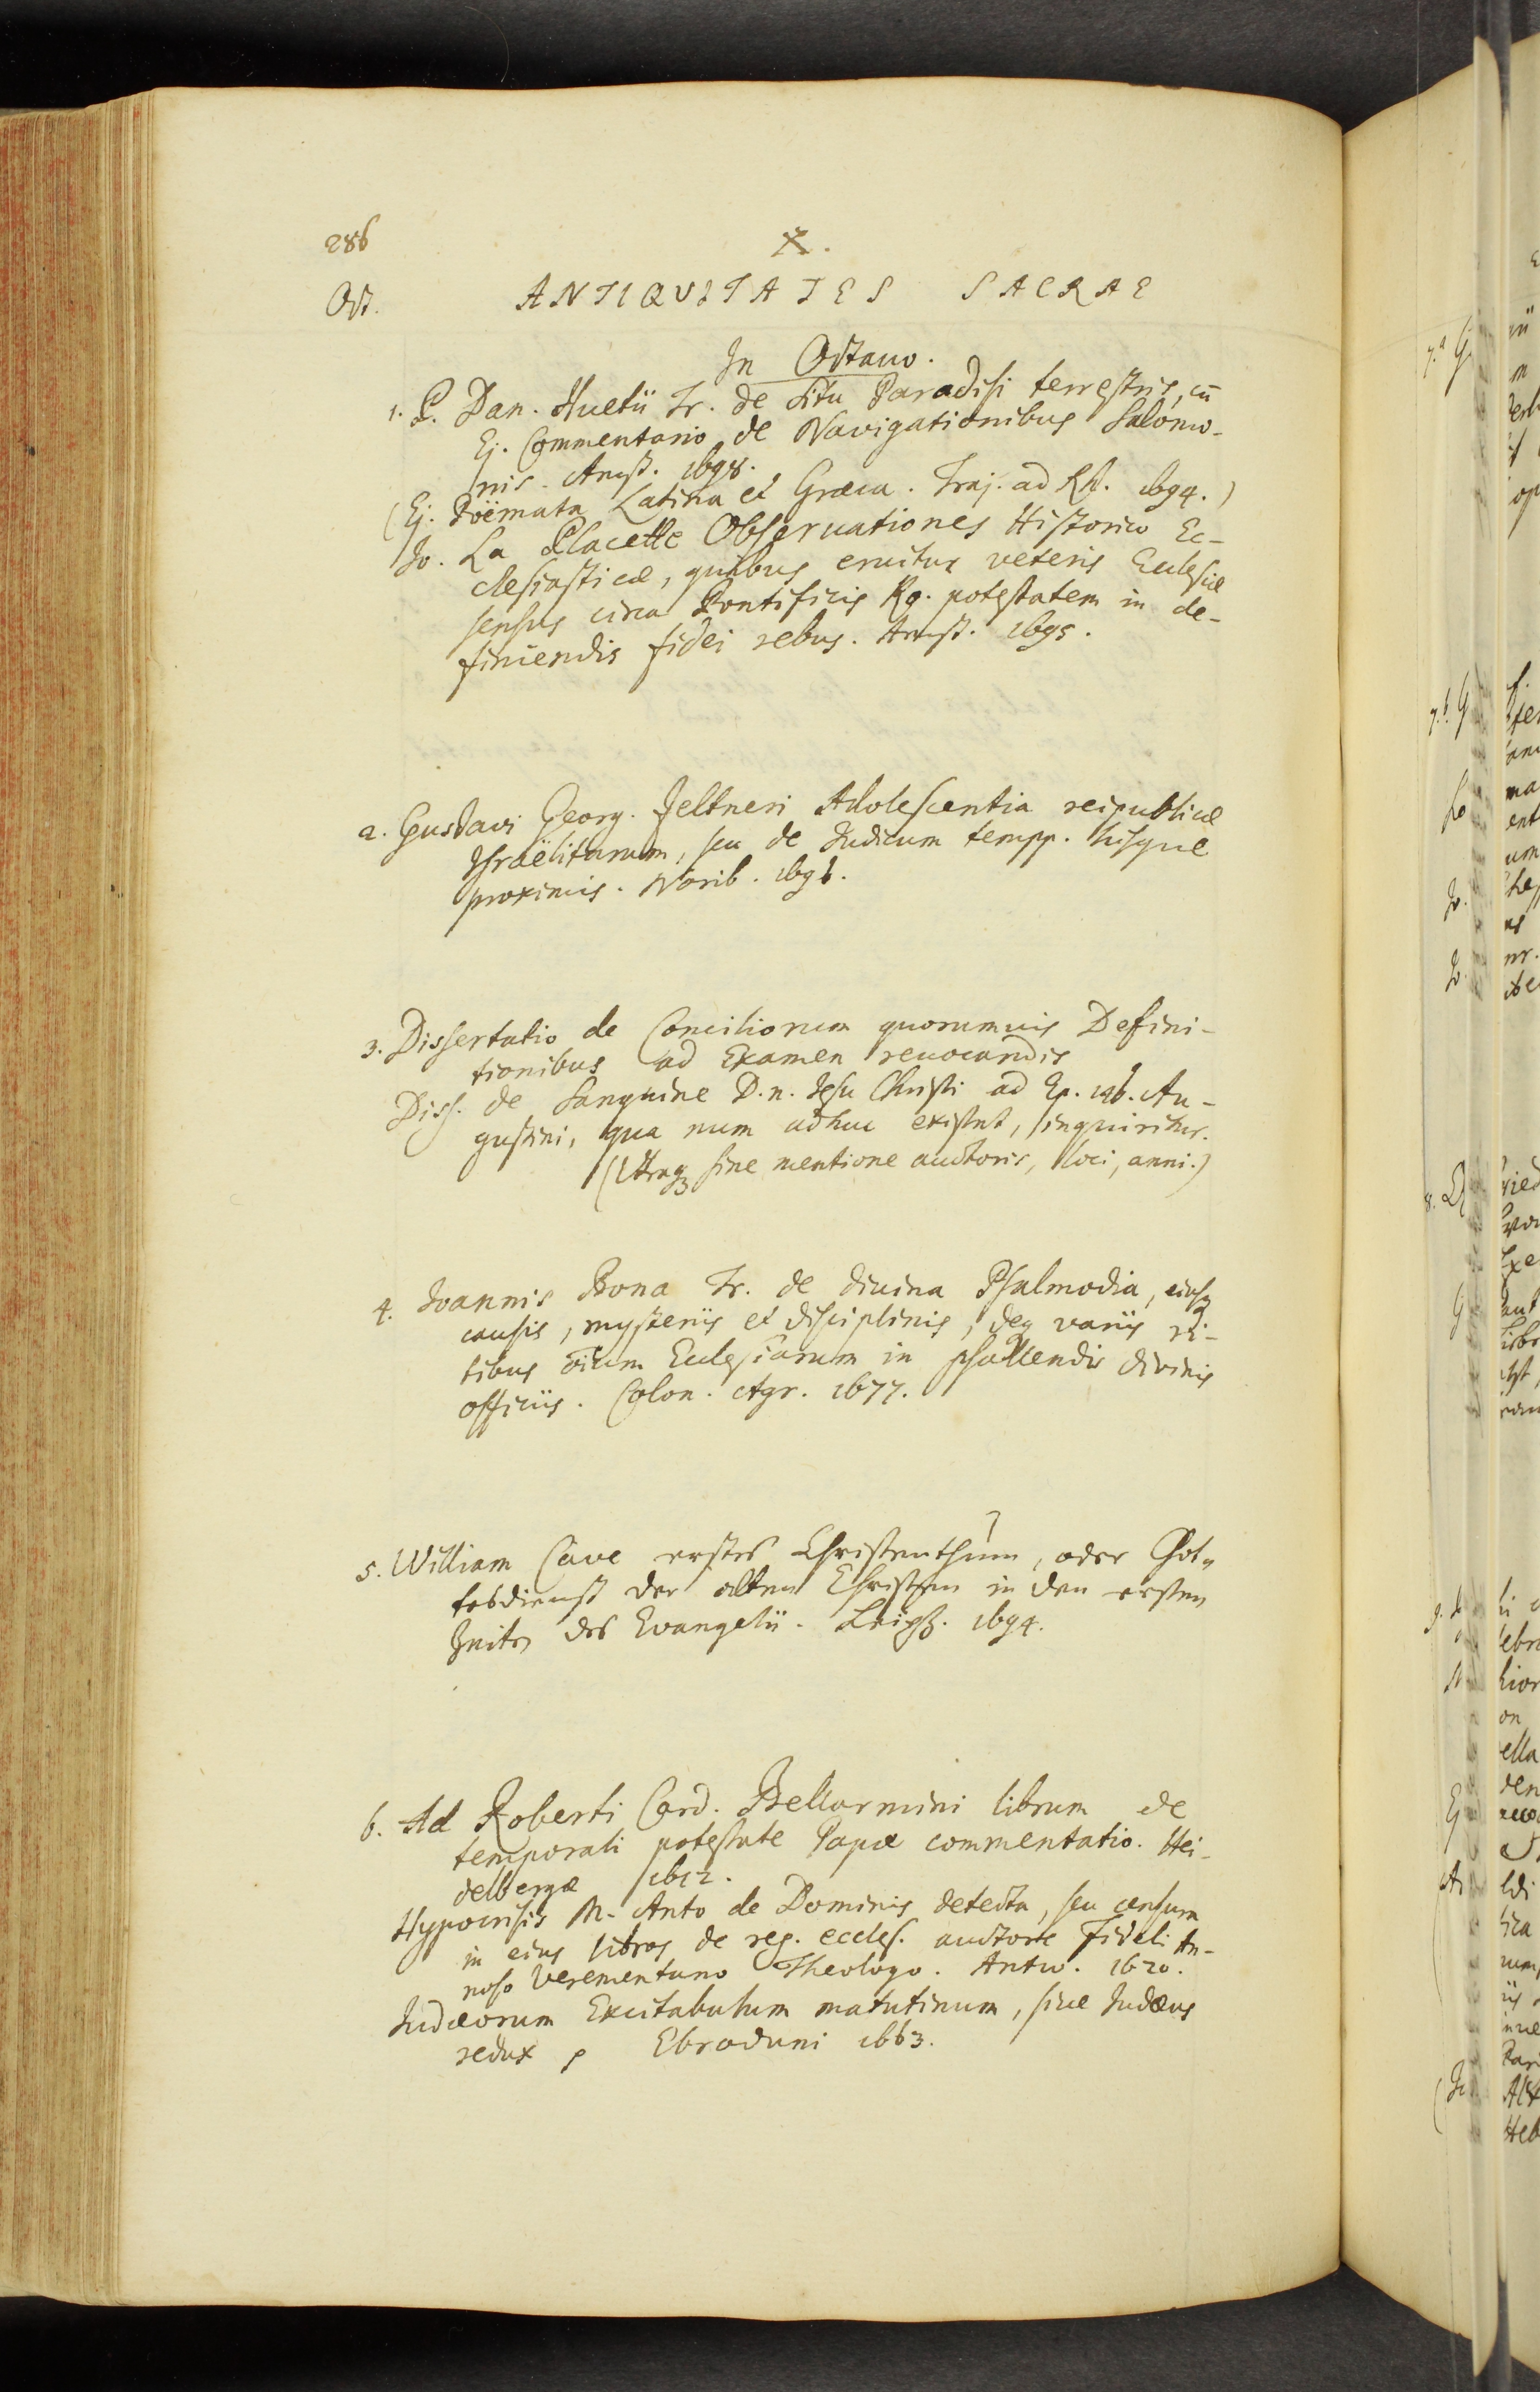 286
X.
Oct.
ANTIQVITATES SACRAE
In Octavo.
1. P. Dan. Huetii Tr. de situ Paradisi terrestris, cū
Ej. Commentario de Navigationibus Salomo-
nis. Amst. 1698.
(Ej. Poëmata Latina et Græca. Traj. ad Rh. 1694.)
Jo. La Placette Observationes Historico Ec-
clesiasticæ, quibus eruitur veteris Ecclesiæ
sensus circa Pontificis Ro. potestatem in de-
finiendis fidei rebus. Amst. 1695.
2. Gustavi Georg. Zeltneri Adolescentia reipublicæ
Israëlitarum, seu de Judicum tempp. hisque
proximis. Norib. 1696.
3. Dissertatio de Conciliorum quorumvis Defini-
tionibus ad Examen revocandis
Diss. de Sanguine D. n. Jesu Christi ad Ep. 146. Au-
gustini, qua num adhuc existat, inquiritur.
(Utraqꝫ sine mentione auctoris, loci, anni.)
4. Joannis Bona Tr. de divina Psalmodia, eiusqꝫ
causis, mysteriis et disciplinis, deq variis ri-
tibus oīum Ecclesiarum in psallendis divinis
officiis. Colon. Agr. 1677.
5. William Cave erstes Christenthum, oder Got-
tesdienst der alten Christen in den ersten
Zeiten des Evangelii. Leipz. 1694.
6. Ad Roberti Card. Bellarmini librum de
temporali potestate Papæ commentatio. Hei-
delbergæ 1612.
Hypocrisis M. Anto de Dominis detecta, seu censura
in eius libros de rep. eccles. auctore Fideli An-
noso Verementano Theologo. Antw. 1620.
Judæorum Excitabulum matutinum, sive Judæus
redux Ebroduni 1663.